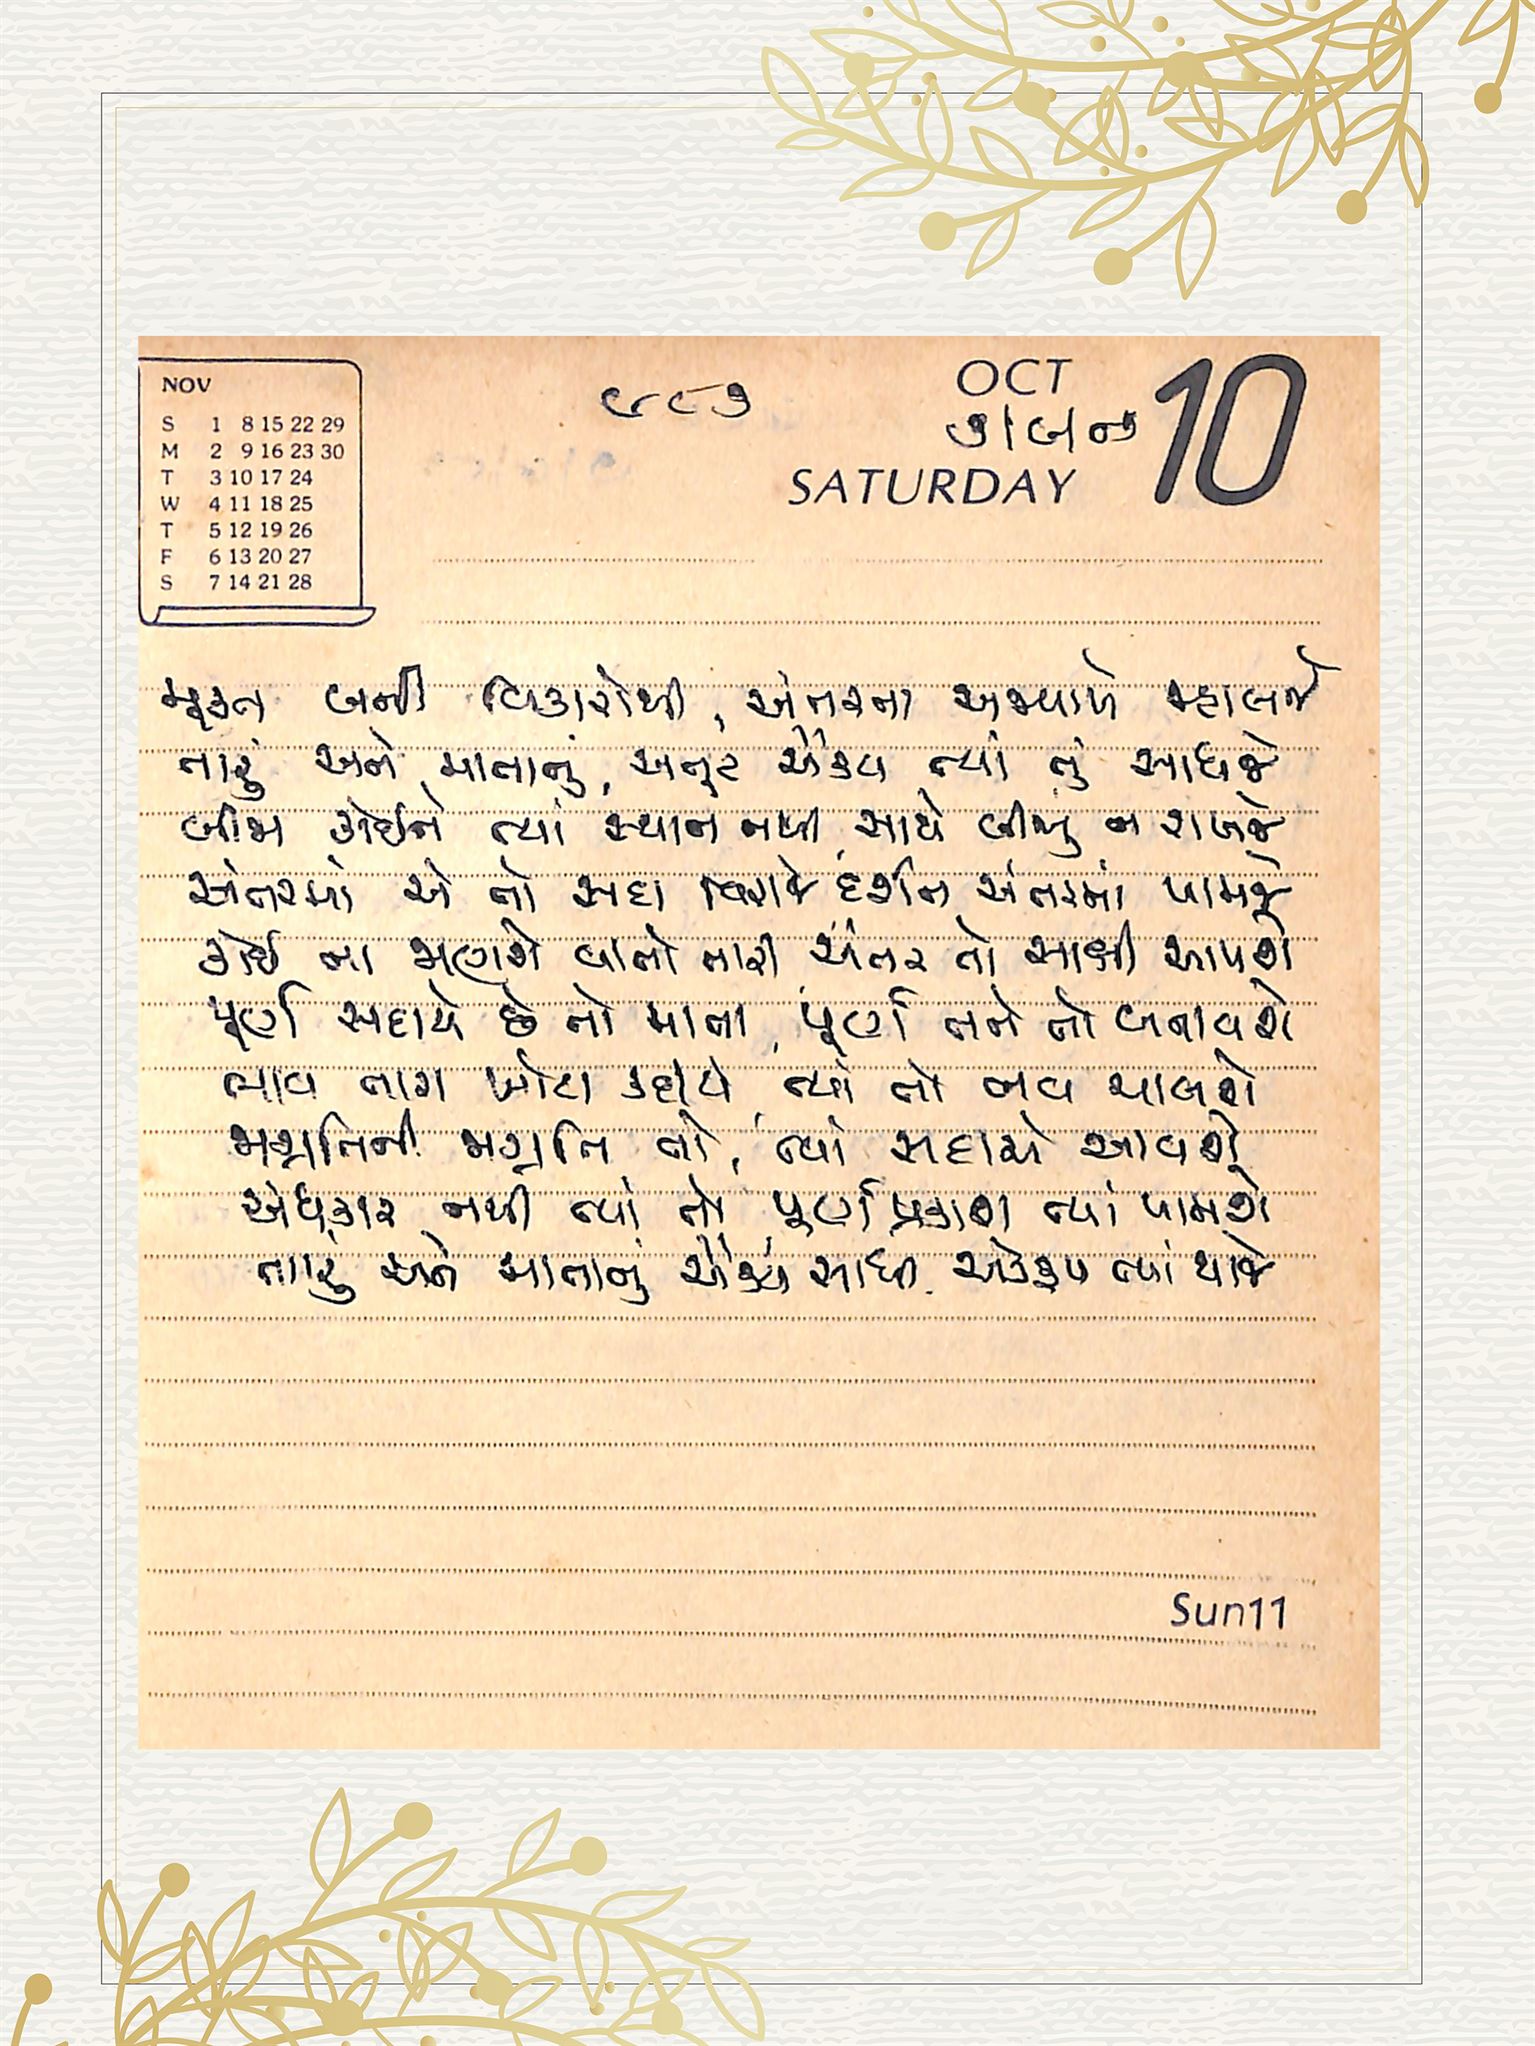 NOV
S 1 8 15 22 29
M 2 9 16 23 30
T 3 10 17 24
W 4 11 18 25
T 5 12 19 26
F 6 13 20 27
S 7 14 21 28
૯૮૭
OCT
10
SATURDAY
મુક્ત બની વિકારોથી, અંતરના મ્હાલજે
તારું અને માતાનું, અતૂટ ઐક્ય ત્યાં તું સાધજે
બીજા કોઈને ત્યાં સ્થાન નથી, સાથે બીજું ન રાખજે
અંતરમાં એ તો સદા બિરાજે દર્શન અંતરમાં પામજે
કોઈ ના જાણશે વાતો તારી અંતર તો સાક્ષી આપશે
પૂર્ણ સદાયે છે તો માતા, પૂર્ણ તને તો બનાવશે
ભાવ તારા ખોટા કદીયે, ત્યાં તો નવ ચાલશે
જાગૃતિની જાગૃતિ તો, ત્યાં સદાયે આવશે
અંધકાર નથી ત્યાં તો પૂર્ણ પ્રકાશ ત્યાં પામશે
તારું અને માતાનું ઐક્ય સાધી, એકરૂપ ત્યાં થાજે
Sun11